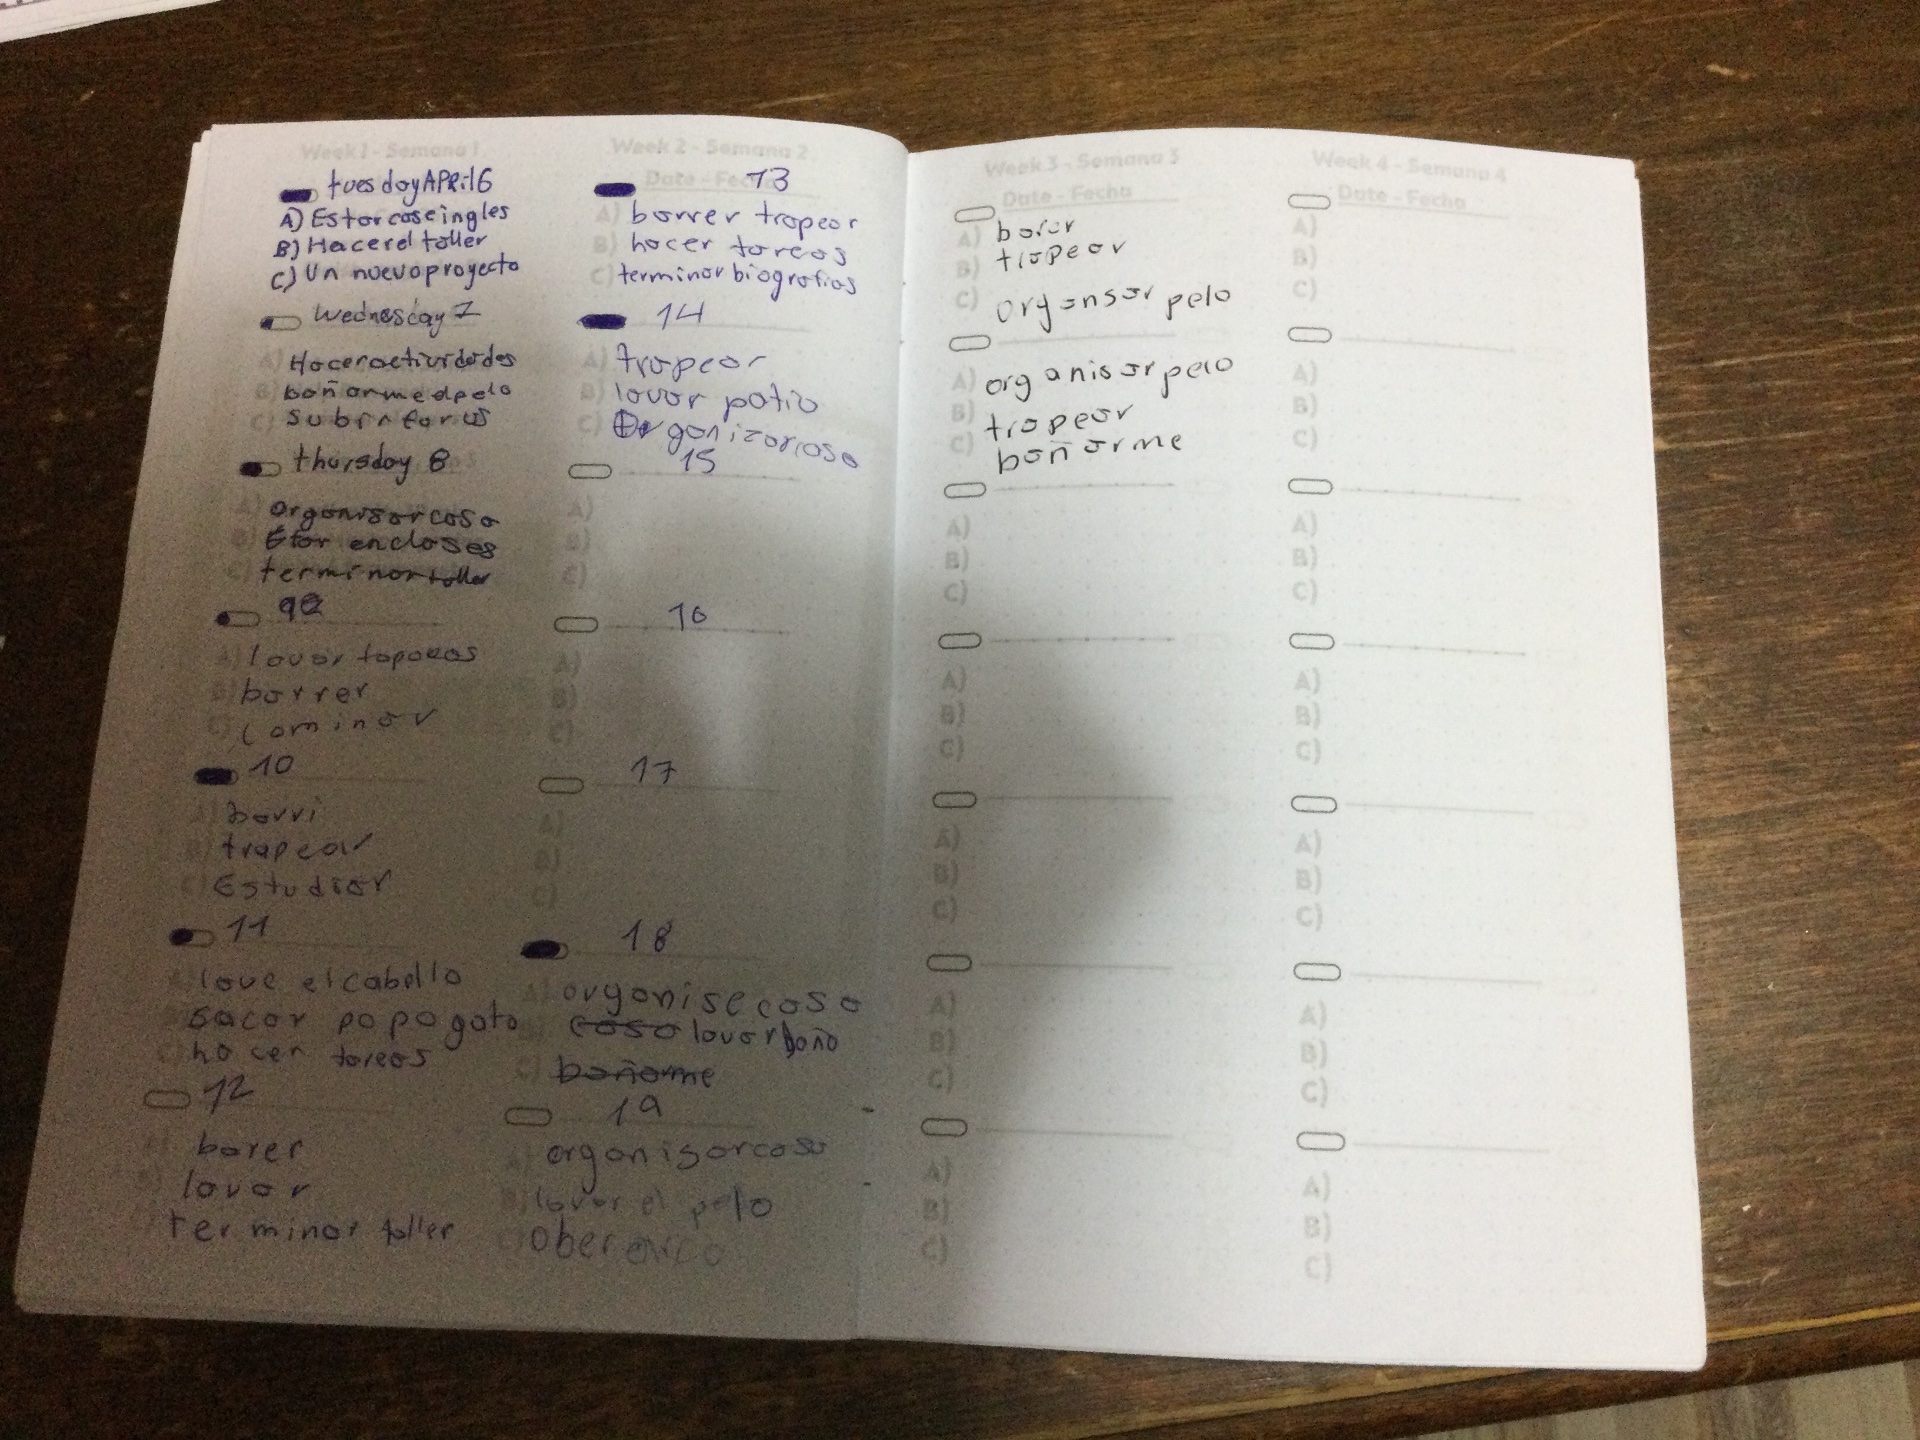 Week 1 - Semana 1
tuesday APRil 6
A) Estar caseingles
B) Hacer el taller
C) Un nuevo proyecto
Wednesday 7
A) Hacer actividades
B) bañarmedpelo
C)
thursday 8
A) organisar casa
B) Etar encloses
C) terminar taller
A) lavar
B) barrer
C) caminar
10
A) barri
B) trapear
C) Estudiar
11
A) lave el cabello
sacar popo gato
C) hacer tareas
12
barer
lavar
terminar taller
Week 2 - Semana 2
Date - Fecha 13
A) barrer trapear
B) hacer tareas
C) terminar biografias
14
A) trapear
B) lavar patio
C) Organizar casa
15
A)
B)
C)
16
A)
B)
C)
17
A)
B)
C)
18
A) organise casa
casa lavar baño
C) bañarme
19
A) organisar casa
B) lavar el pelo
Week 3 - Semana 3
Date - Fecha
A) barer
B) trapear
C) organsar pelo
A) organisar pelo
B) trapear
C) bañarme
A)
B)
C)
A)
B)
C)
A)
B)
C)
A)
B)
C)
A)
B)
C)
Week 4 - Semana 4
Date - Fecha
A)
B)
C)
A)
B)
C)
A)
B)
C)
A)
B)
C)
A)
B)
C)
A)
B)
C)
A)
B)
C)